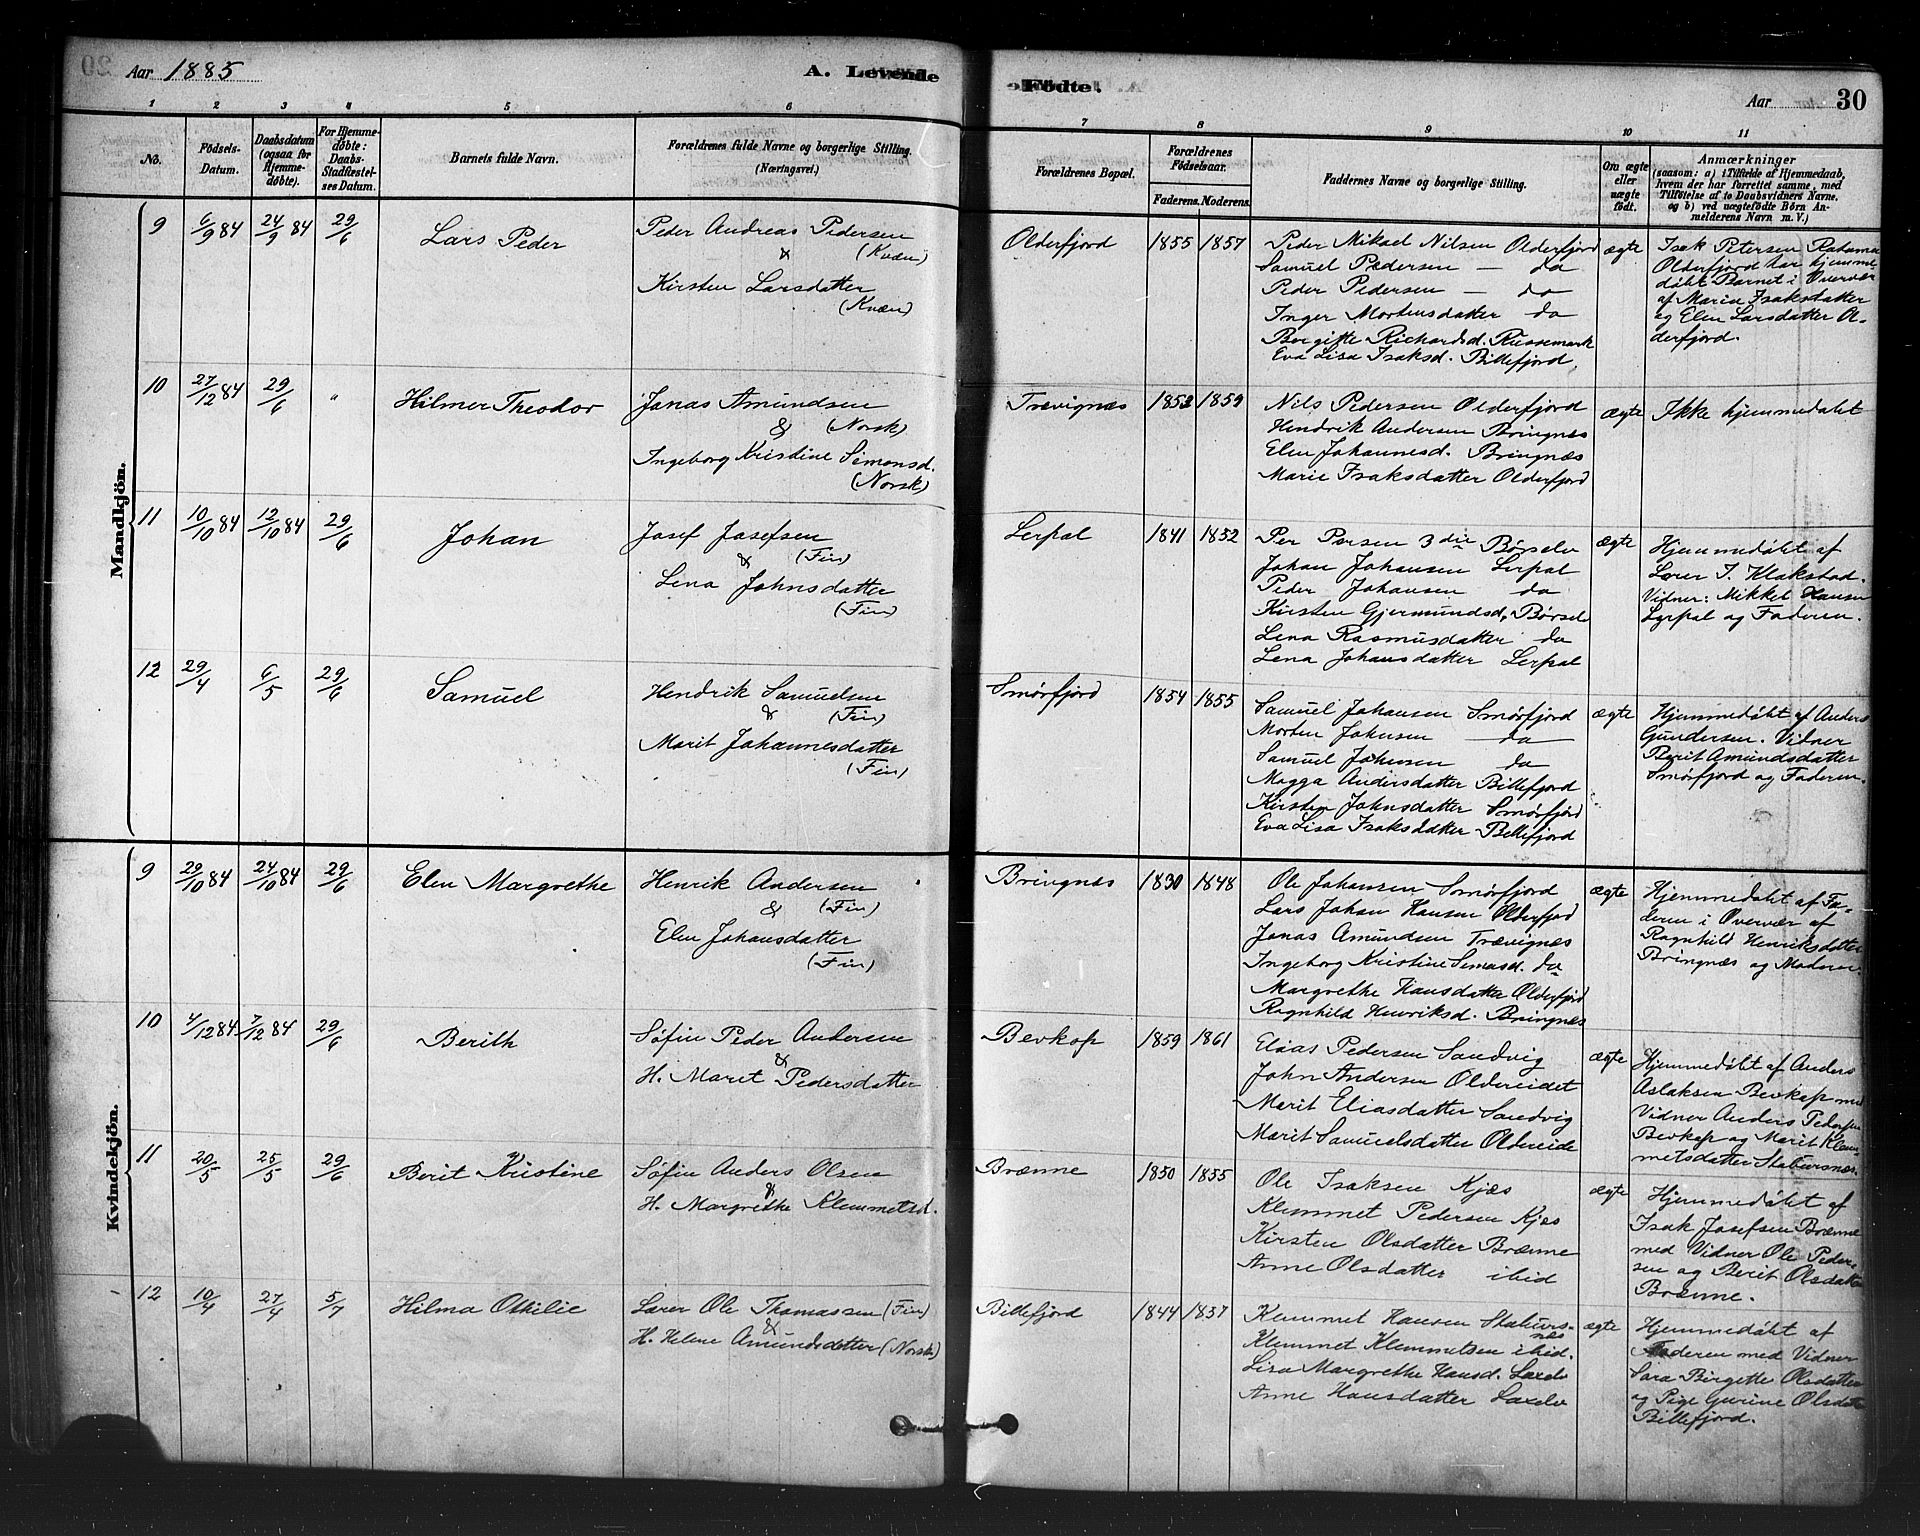 Aar 1885
A. Levende
Födte.
Aar
30
1 2 3 4 5 6 7 8 9 10 11
No.
Födsels-
Datum.
Daabsdatum
(ogsaa for
Hjemme-
døbte).
For Hjemme-
døbte:
Daabs-
Stadfæstel-
ses Datum.
Barnets fulde Navn.
Forældrenes fulde Navne og borgerlige Stilling.
(Næringsvei.)
Forældrenes Bopæl.
Forældrenes
Födselsaar.
Faderens. Moderens.
Faddernes Navne og borgerlige Stilling.
Om ægte
eller
uægte
födt.
Anmærkninger
(saasom: a) i Tilfælde af Hjemmedaab,
hvem der har forrettet samme, med
Tilföielse af to Daabsvidners Navne,
og b) ved uægtefödte Börn An-
melderens Navn m. V.)
Mandkjön.
9 6/9 84 24/9 84 29/6
Lars Peder
Peder Andreas Pedersen
& (Kvæn)
Kirsten Larsdatter
(Kvæn)
Olderfjord 1855 1857
Peder Mikael Nilsen Olderfjord
Samuel Pedersen — do
Peder Pedersen — do
Inger Mortensdatter do
Borgitte Richardsd. Russemark
Eva Lisa Isaksd. Billefjord
ægte
Isak Petersen
Olderfjord har hjemme
døbt Barnet i Overvær
af Maria Isaksdatter
og Elen Larsdatter Ol-
derfjord.
10 27/12 84 29/6 "
Hilmer Theodor
Jonas Amundsen
& (Norsk)
Ingeborg Kristine Simonsd.
(Norsk)
Trævignæs 1853 1859
Nils Pedersen Olderfjord
Hendrik Andersen Bringnæs
Elen Johannesd. Bringnæs
Marie Isaksdatter Olderfjord
ægte
Ikke hjemmedøbt
11 10/10 84 12/10 84 29/6
Johan
Josef Josefsen
& (Fin)
Lena Johnsdatter
(Fin)
Lerpol 1841 1852
Per Persen 3die Børselv
Johan Johansen Lerpol
Peder Johansen do
Kirsten Gjermundsd. Børselv
Lena Rasmusdatter do
Lena Johansdatter Lerpol
ægte
Hjemmedøbt af
Lærer I. Klakstad.
Vidner: Mikkel Hansen
Lerpol og Faderen.
12 29/4 6/5 29/6
Samuel
Hendrik Samuelsen
& (Fin)
Marit Johannesdatter
(Fin)
Smørfjord 1854 1855
Samuel Johansen Smørfjord
Morten Johnsen do
Samuel Johnsen do
Magga Andersdatter Billefjord
Kirsten Johnsdatter Smørfjord
Eva Lisa Isaksdatter Billefjord
ægte
Hjemmedøbt af Anders
Gundersen. Vidner
Berit Amundsdatter
Smørfjord og Faderen.
Kvindekjön.
9 29/10 84 24/10 84 29/6
Elen Margrethe
Henrik Andersen
& (Fin)
Elen Johansdatter
(Fin)
Bringnæs 1830 1848
Ole Johansen Smørfjord
Lars Johan Hansen Olderfjord
Jonas Amundsen Trævignæs
Ingeborg Kristine Simonsd. do
Margrethe Hansdatter Olderfjord
Ragnhild Henriksd. Bringnæs
ægte
Hjemmedøbt af Fa-
deren i Overvær af
Ragnhild Henriksdatter
Bringnæs og Moderen.
10 4/12 84 7/12 84 29/6
Berith
Søfin Peder Andersen
&
H. Maret Pedersdatter
Bevkop 1859 1861
Elias Pedersen Sandvig
John Andersen Oldereidet
Marit Eliasdatter Sandvig
Marit Samuelsdatter Oldereide
ægte
Hjemmedøbt af Anders
Aslaksen Bevkop med
Vidner Anders Pedersen
Bevkop og Marit Klem-
metsdatter Stabursnæs.
11 20/5 25/5 29/6
Berit Kristine
Søfin Anders Olsen
&
H. Margrethe Klemmetsd.
Brænne 1850 1855
Ole Isaksen Kjæs
Klemmet Pedersen Kjæs
Kirsten Olsdatter Brænne
Anne Olsdatter ibid
ægte
Hjemmedøbt af
Isak Josefsen Brænne
med Vidner Ole Peder-
sen og Berit Olsdatter
Brænne.
12 10/4 27/4 5/7
Hilma Othilie
Lærer Ole Thomassen (Fin)
&
H. Helene Amundsdatter (Norsk)
Billefjord 1844 1837
Klemmet Hansen Staburs-
næs
Klemmet Klemmetsen ibid.
Lisa Margrethe Hansd. Laxelv
Anne Hansdatter Laxelv
ægte
Hjemmedøbt af
Faderen med Vidner
Sara Birgette Olsdatter
og Pige Gurine Olsdatter
Billefjord.